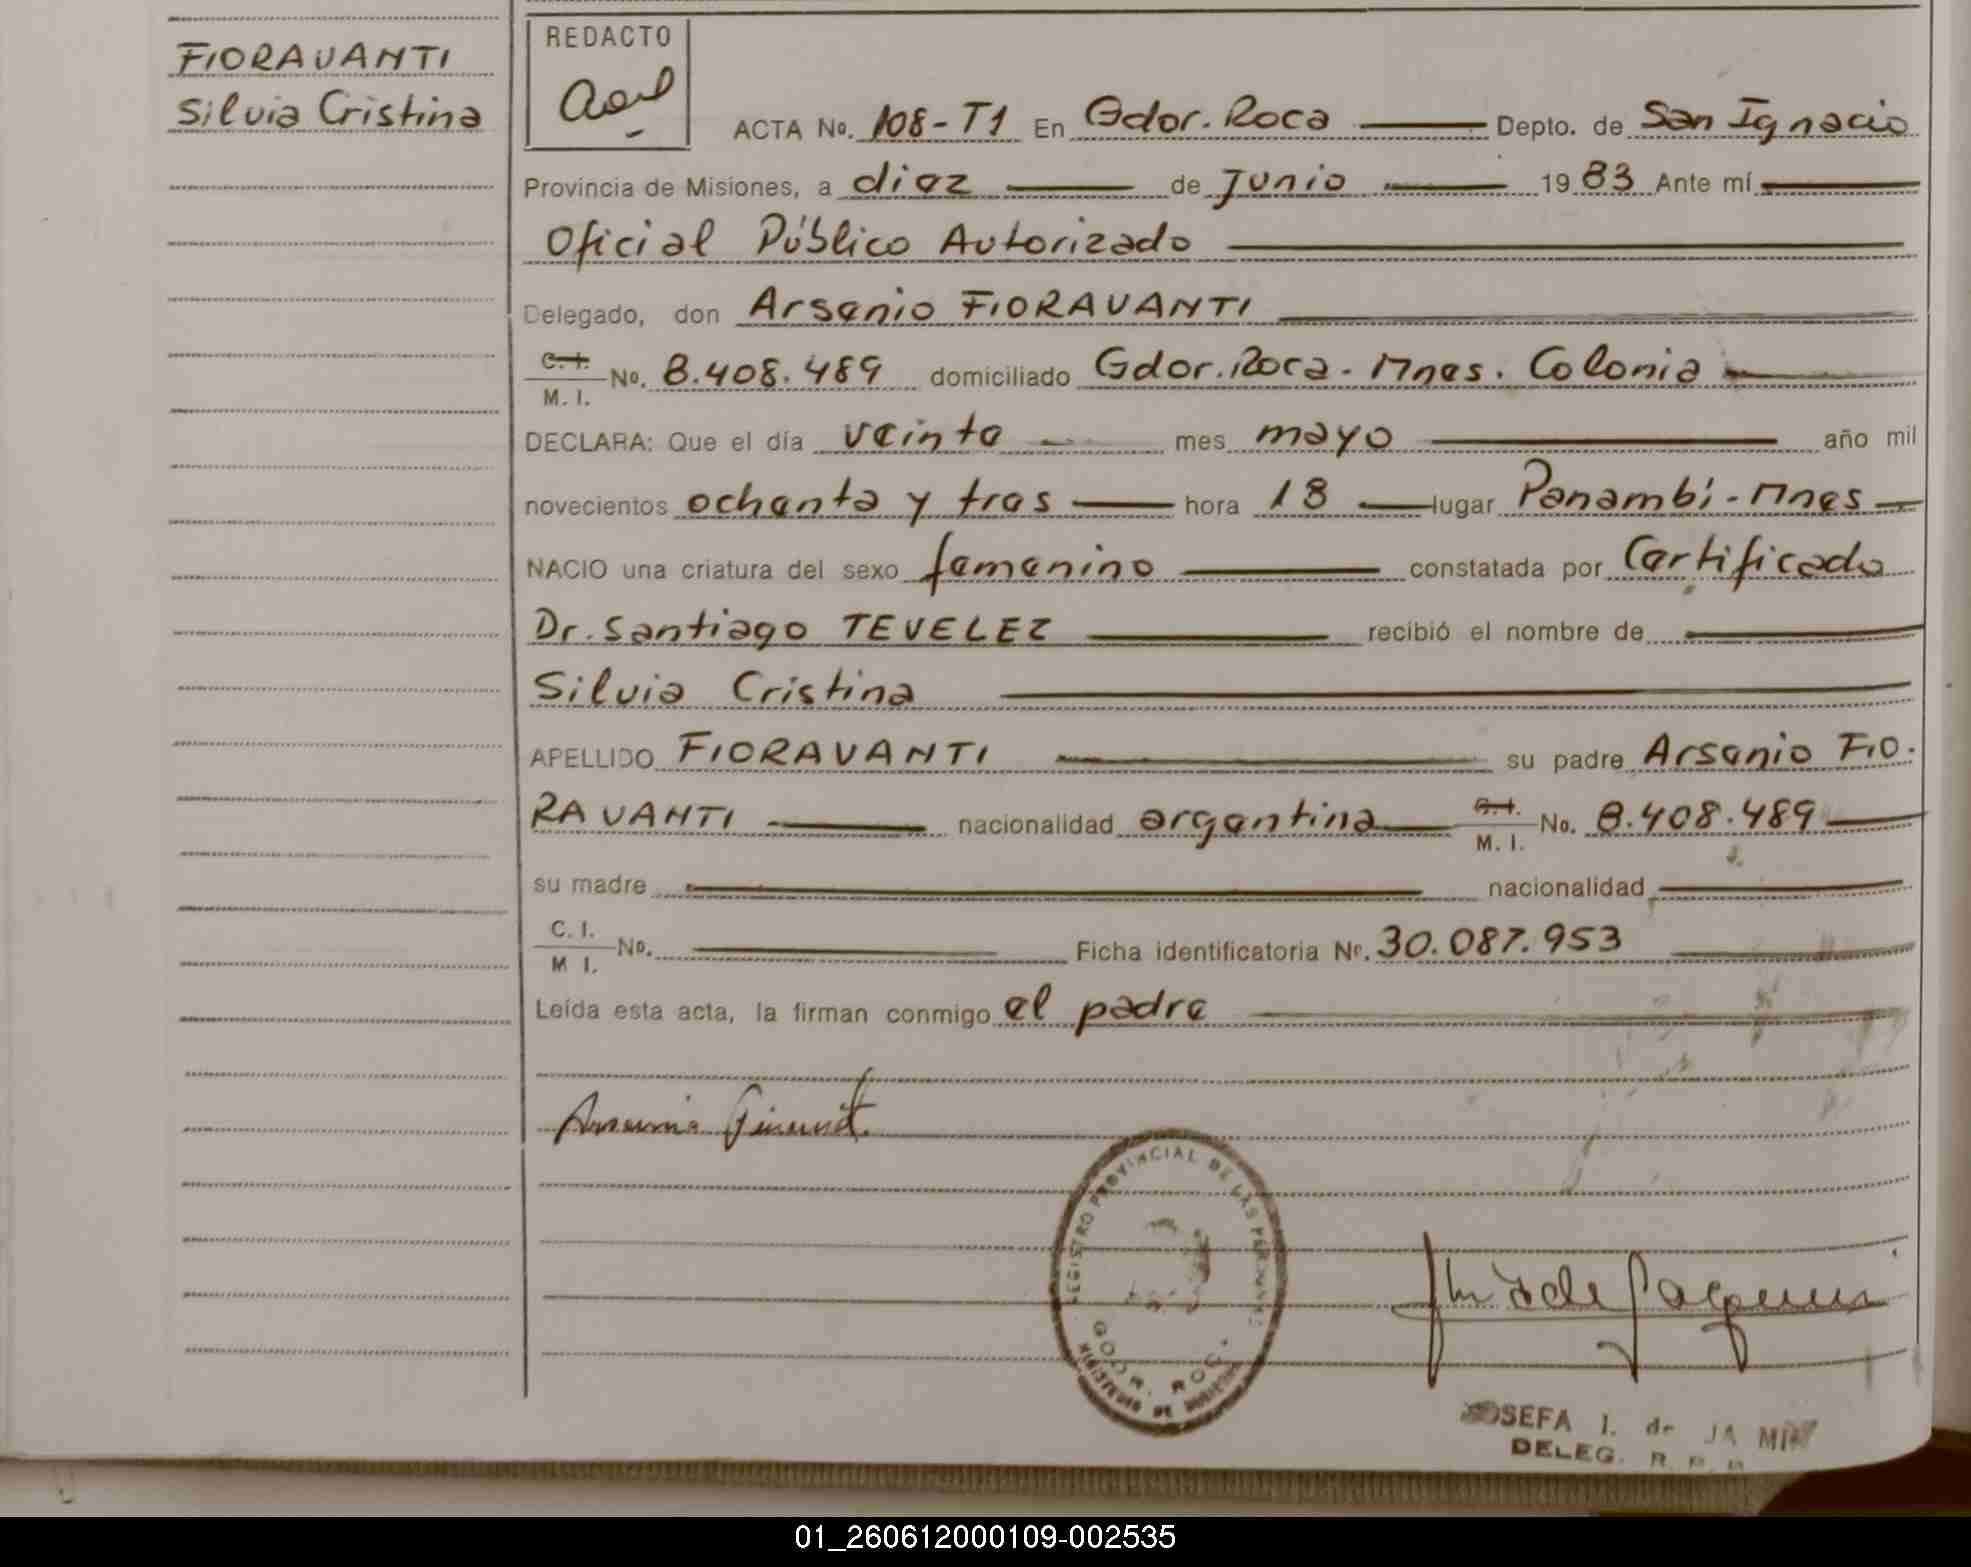 FIORAVANTI
Silvia Cristina
REDACTO
ACTA No. 108-T1 En Gdor. Roca Depto. de San Ignacio
Provincia de Misiones, a diez de Junio 1983 Ante mí
Oficial Público Autorizado
Delegado, don Arsenio FIORAVANTI
C.I. M. I. No. 8.408.489 domiciliado Gdor. Roca - Mnes. Colonia
DECLARA: Que el día veinte mes mayo año mil
novecientos ochenta y tres hora 18 lugar Panambí - Mnes
NACIO una criatura del sexo femenino constatada por Certificado
Dr. Santiago TEVELEZ recibió el nombre de
Silvia Cristina
APELLIDO FIORAVANTI su padre Arsenio FIO.
RAVANTI nacionalidad argentina C.I. M. I. No. 8.408.489
su madre nacionalidad
C. I. M I. No. Ficha identificatoria No. 30.087.953
Leída esta acta, la firman conmigo el padre
REGISTRO PROVINCIAL DE LAS PERSONAS
GDOR. ROCA
MINISTERIO DE
JOSEFA I. de
DELEG. R. P.
01_260612000109-002535